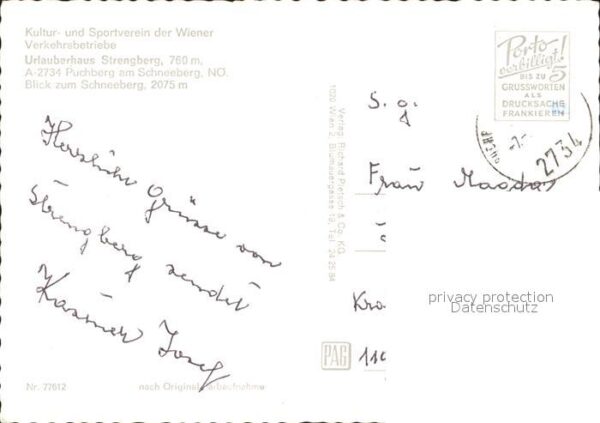 Kultur- und Sportverein der Wiener
Verkehrsbetriebe
Urlauberhaus Strengberg, 760 m,
A-2734 Puchberg am Schneeberg, NÖ.
Blick zum Schneeberg, 2075 m
Herzliche Grüsse von
Strengberg sendet
Josef
Nr. 77612
nach Original-Farbaufnahme
Verlag Richard Pietsch & Co. KG
1020 Wien 2, Blumauergasse 19, Tel. 24 25 84
PAG
Porto
verbilligt!
BIS ZU 5
GRUSSWORTEN
ALS
DRUCKSACHE
FRANKIEREN
2734
S. g.
Frau
Kra
110
privacy protection
Datenschutz